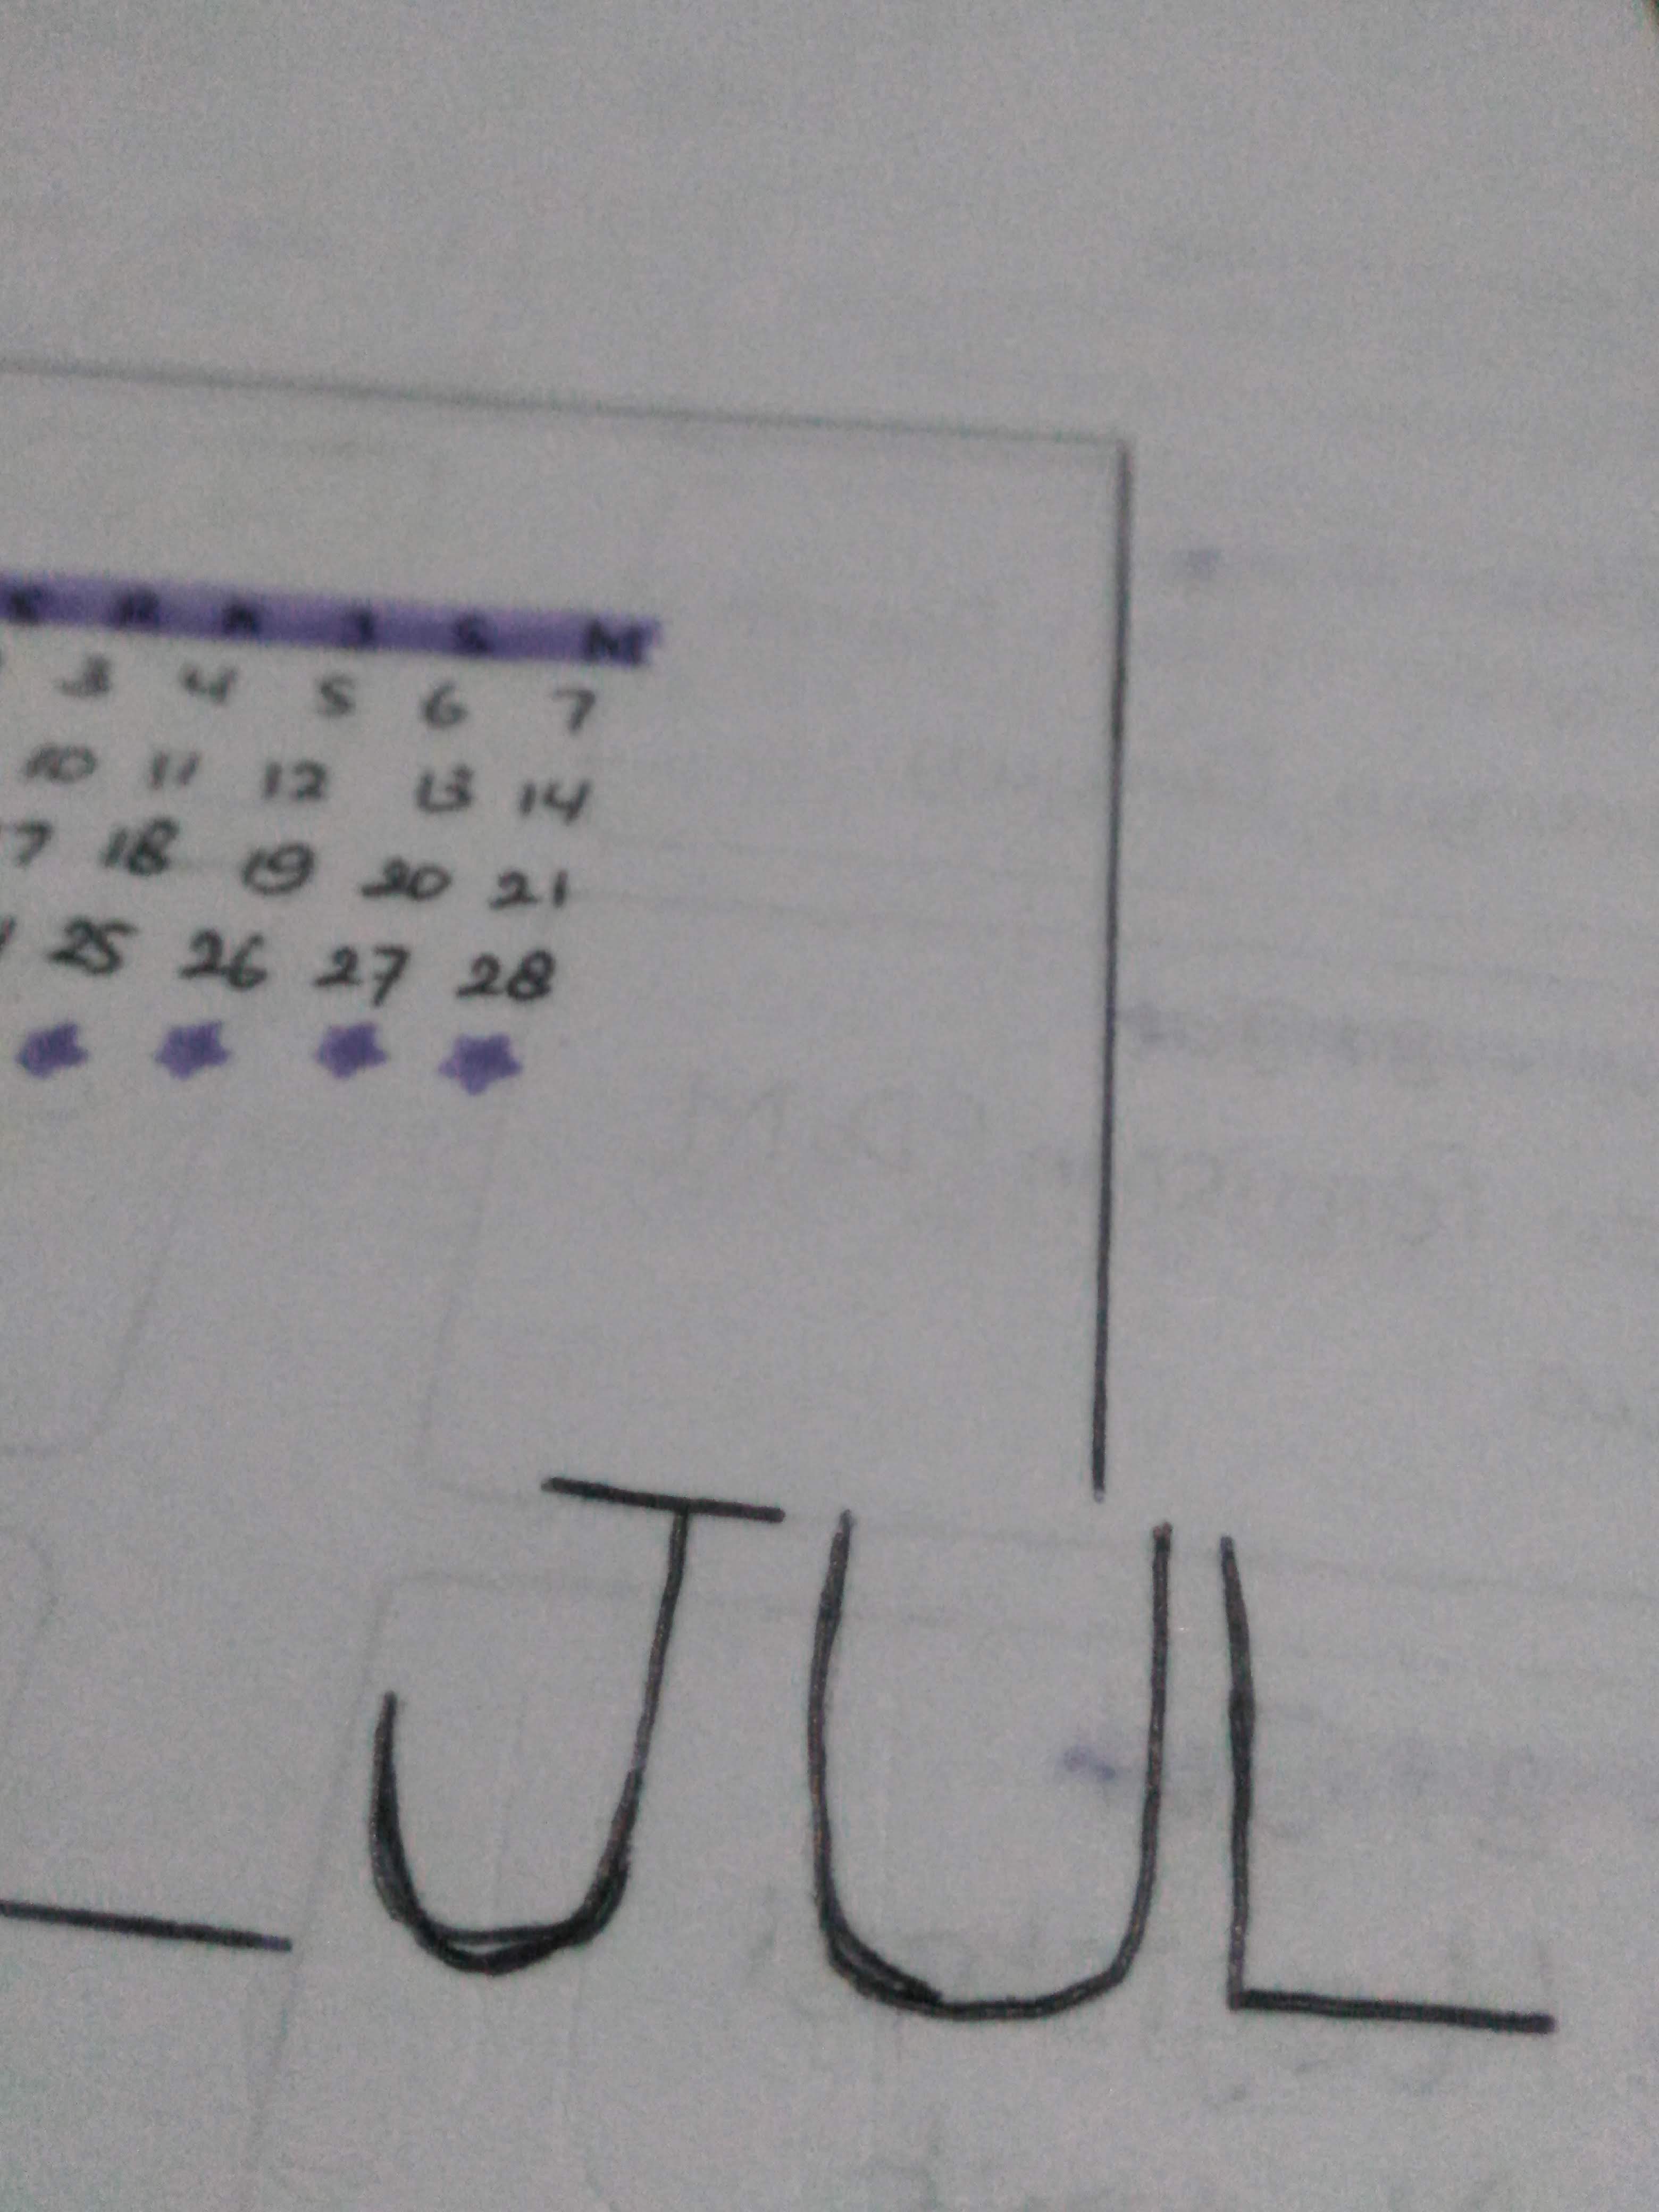 S R K J S M
3 4 5 6 7
10 11 12 13 14
18 19 20 21
25 26 27 28
JUL